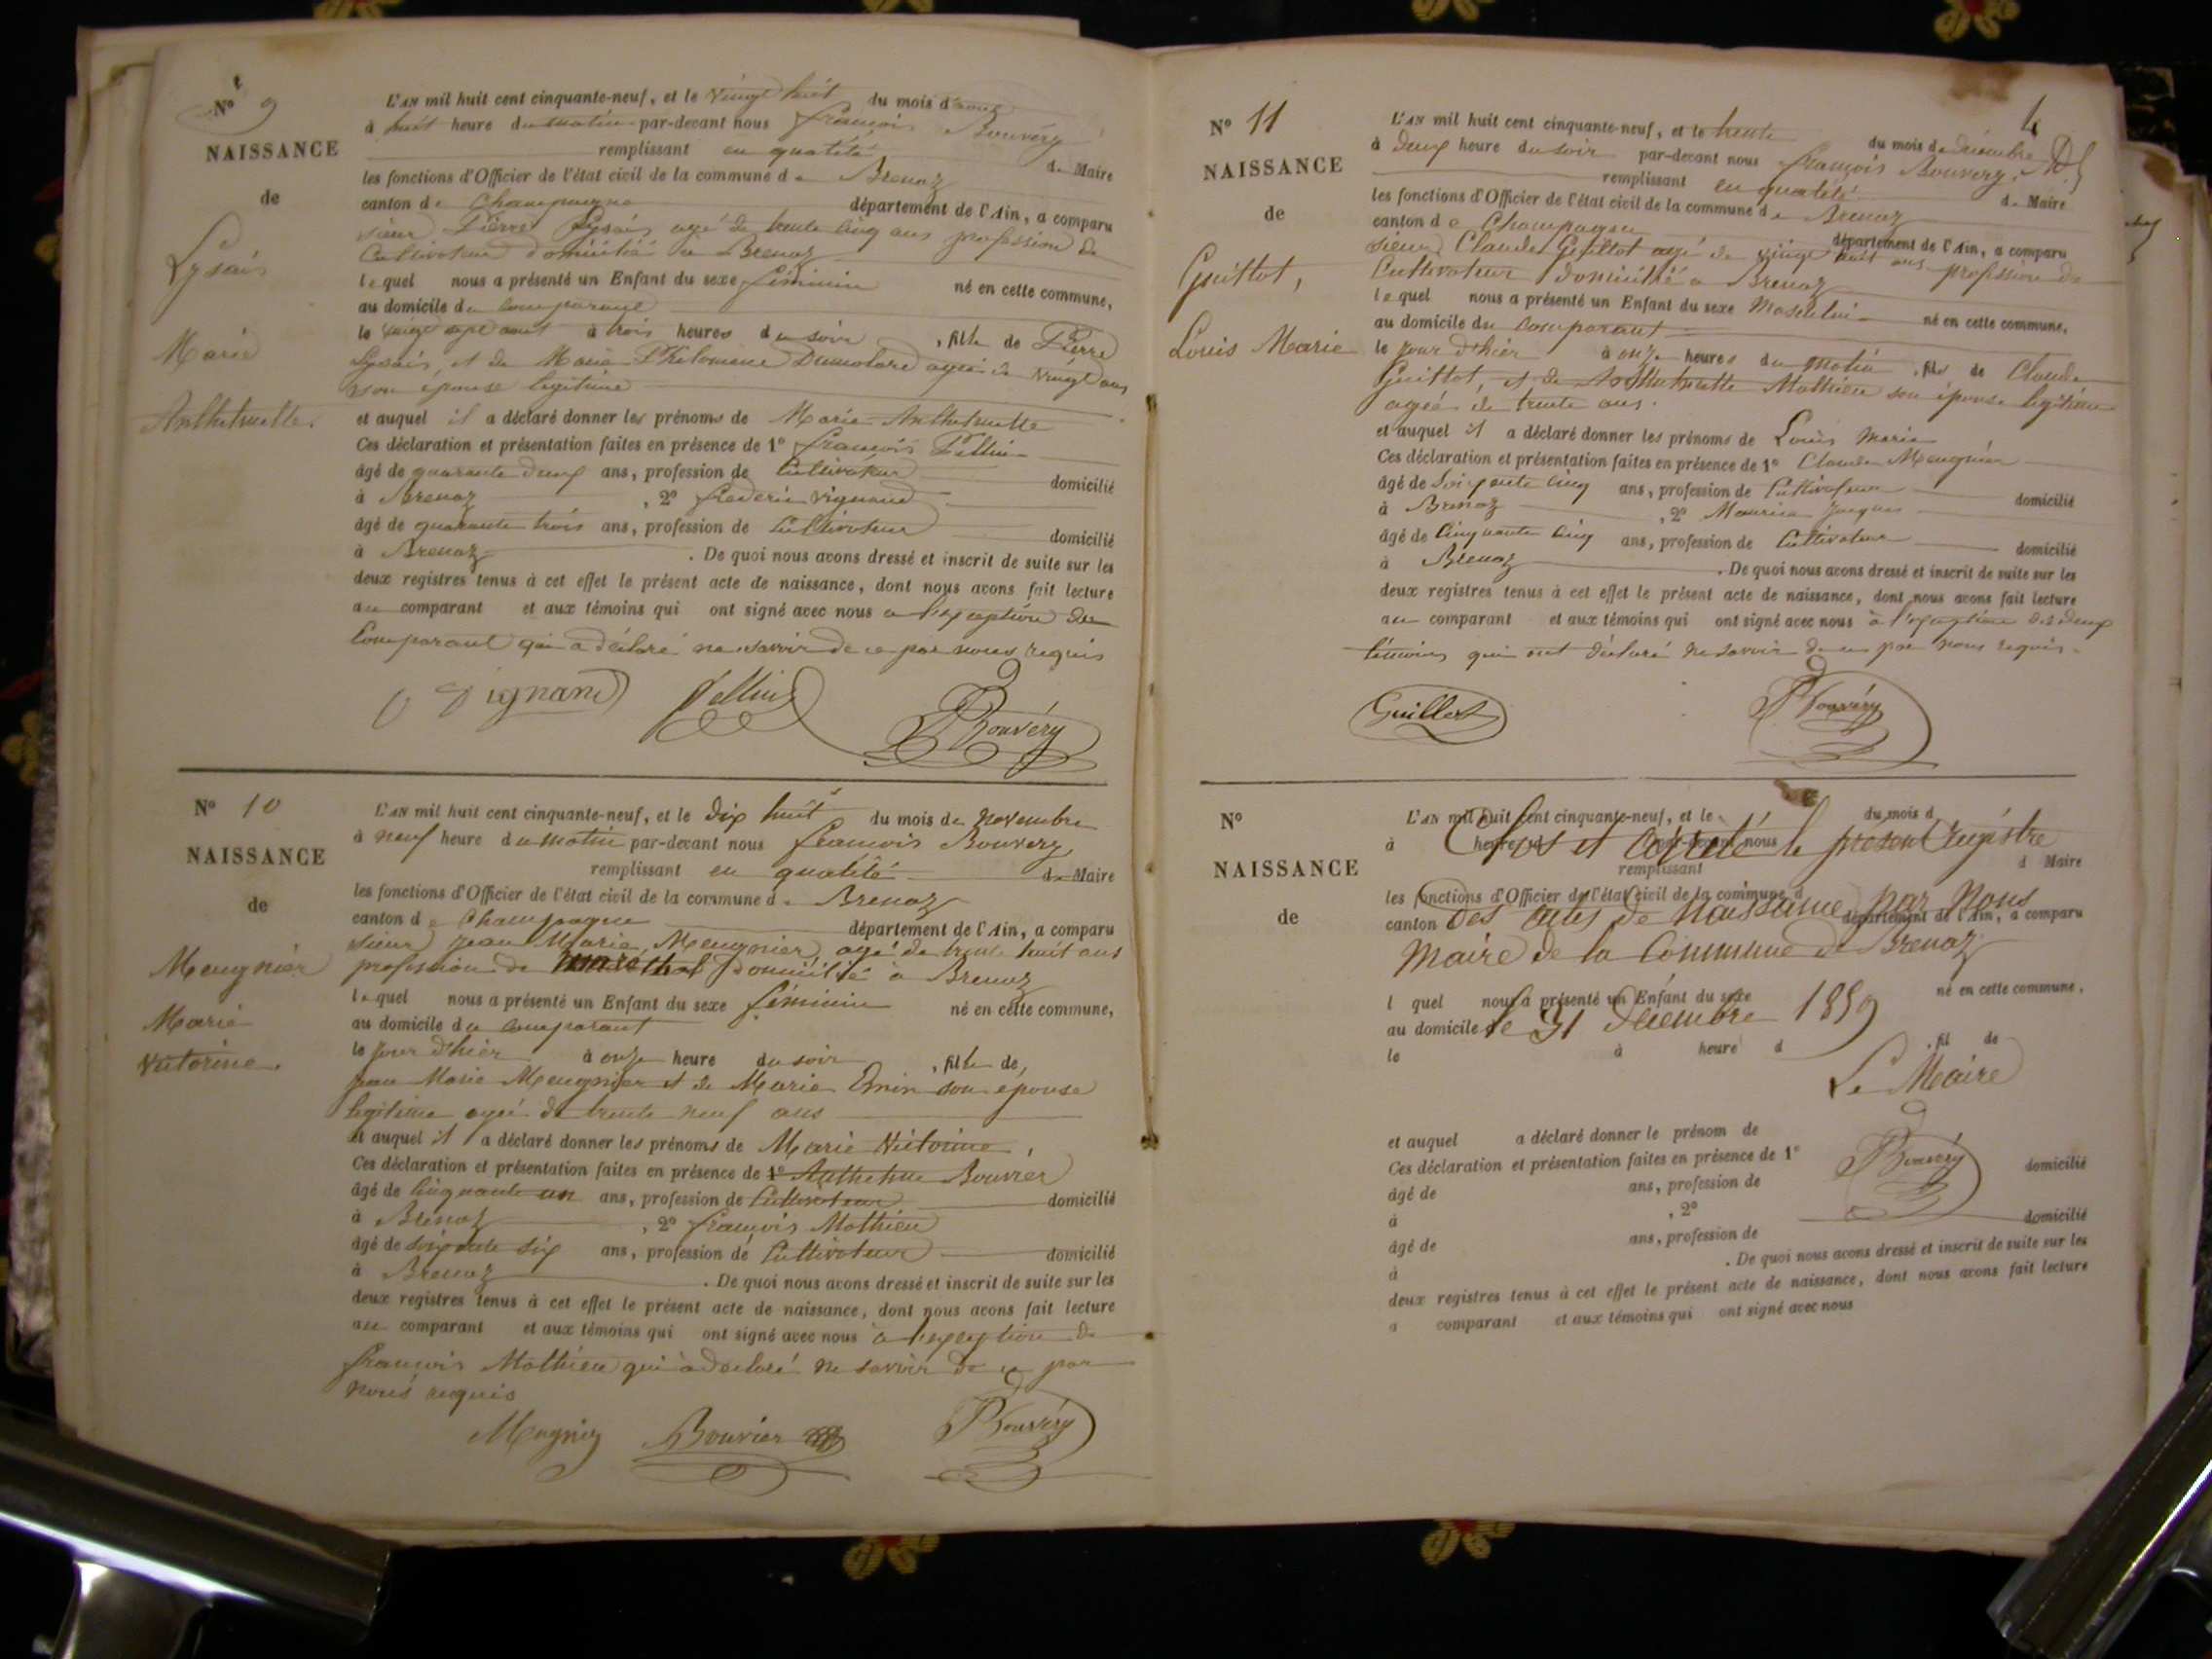 N° 9
NAISSANCE
de
Lysais
Marie
Anthelmette.
L'AN mil huit cent cinquante-neuf, et le vingt huit du mois d'aout
à huit heure du matin par-devant nous françois Bouvéry
remplissant en qualité de Maire
les fonctions d'Officier de l'état civil de la commune de Brenaz
canton de Champagne département de l'Ain, a comparu
sieur Pierre Lysais agé de trente cinq ans profession de
Cultivateur domicilié à Brenaz
lequel nous a présenté un Enfant du sexe féminin né en cette commune,
au domicile du comparant
le vingt sept aout à trois heures du soir, fille de Pierre
Lysais, et de Marie Philomene Dumolard agée de vingt ans
son épouse legitime
et auquel il a déclaré donner les prénoms de Marie Anthelmette
Ces déclaration et présentation faites en présence de 1° françois
âgé de quarante deux ans, profession de Cultivateur domicilié
à Brenaz, 2° frederic vignand
âgé de quarante trois ans, profession de Cultivateur domicilié
à Brenaz. De quoi nous avons dressé et inscrit de suite sur les
deux registres tenus à cet effet le présent acte de naissance, dont nous avons fait lecture
au comparant et aux témoins qui ont signé avec nous a l'exception du
Comparant qui a déclaré ne savoir de ce par nous requis
Vignand Bouvéry
N° 10
NAISSANCE
de
Meugnier
Marie
Victorine.
L'AN mil huit cent cinquante-neuf, et le Dix huit du mois de novembre
à neuf heure du matin par-devant nous françois Bouvery
remplissant en qualité de Maire
les fonctions d'Officier de l'état civil de la commune de Brenaz
canton de Champagne département de l'Ain, a comparu
sieur jean Marie Meugnier agé de trente huit ans
profession de marechal domicilié à Brenaz
lequel nous a présenté un Enfant du sexe féminin né en cette commune,
au domicile du comparant
le jour d'hier à onze heure du soir, fille de,
jean Marie Meugnier et de Marie Emin son épouse
legitime agée de trente neuf ans
et auquel il a déclaré donner les prénoms de Marie Victorine,
Ces déclaration et présentation faites en présence de 1° Anthelme Bouvier
âgé de cinquante un ans, profession de Cultivateur domicilié
à Brenaz, 2° françois Mathieu
âgé de soixante six ans, profession de Cultivateur domicilié
à Brenaz. De quoi nous avons dressé et inscrit de suite sur les
deux registres tenus à cet effet le présent acte de naissance, dont nous avons fait lecture
au comparant et aux témoins qui ont signé avec nous à l'exception de
françois Mathieu qui à declaré ne savoir de ce par
nous requis
Bouvier Bouvéry
4
N° 11
NAISSANCE
de
Guillot,
Louis Marie
L'AN mil huit cent cinquante-neuf, et le trente du mois de décembre
à deux heure du soir par-devant nous françois Bouvery,
remplissant en qualité de Maire
les fonctions d'Officier de l'état civil de la commune de Brenaz
canton de Champagne département de l'Ain, a comparu
sieur Claude Guillot agé de vingt huit ans profession de
Cultivateur domicilié à Brenaz
lequel nous a présenté un Enfant du sexe Masculin né en cette commune,
au domicile du Comparant
le jour d'hier à onze heures du matin, fils de Claude
Guillot, et de Mathieu son épouse legitime
agée de trente ans.
et auquel il a déclaré donner les prénoms de Louis Marie
Ces déclaration et présentation faites en présence de 1° Claude Meugnier
âgé de Soixante cinq ans, profession de Cultivateur domicilié
à Brenaz, 2° Maurice Jacques
âgé de Cinquante cinq ans, profession de Cultivateur domicilié
à Brenaz. De quoi nous avons dressé et inscrit de suite sur les
deux registres tenus à cet effet le présent acte de naissance, dont nous avons fait lecture
au comparant et aux témoins qui ont signé avec nous à l'exception des deux
témoins qui ont déclaré ne savoir de ce par nous requis.
Guillot Bouvéry
N°
NAISSANCE
de
L'AN mil huit cent cinquante-neuf, et le du mois d
à heure d par-devant nous
Clos et arrêté le présent régistre
remplissant d Maire
les fonctions d'Officier de l'état civil de la commune d
canton département de l'Ain, a comparu
des actes de Naissance par Nous
Maire de la Commune de Brenaz
l quel nous a présenté un Enfant du sexe né en cette commune,
au domicile
le 31 Décembre 1859
le à heure d, fil de
Le Maire
et auquel a déclaré donner le prénom de
Ces déclaration et présentation faites en présence de 1°
Bouvéry
âgé de ans, profession de domicilié
à, 2°
âgé de ans, profession de domicilié
à. De quoi nous avons dressé et inscrit de suite sur les
deux registres tenus à cet effet le présent acte de naissance, dont nous avons fait lecture
a comparant et aux témoins qui ont signé avec nous